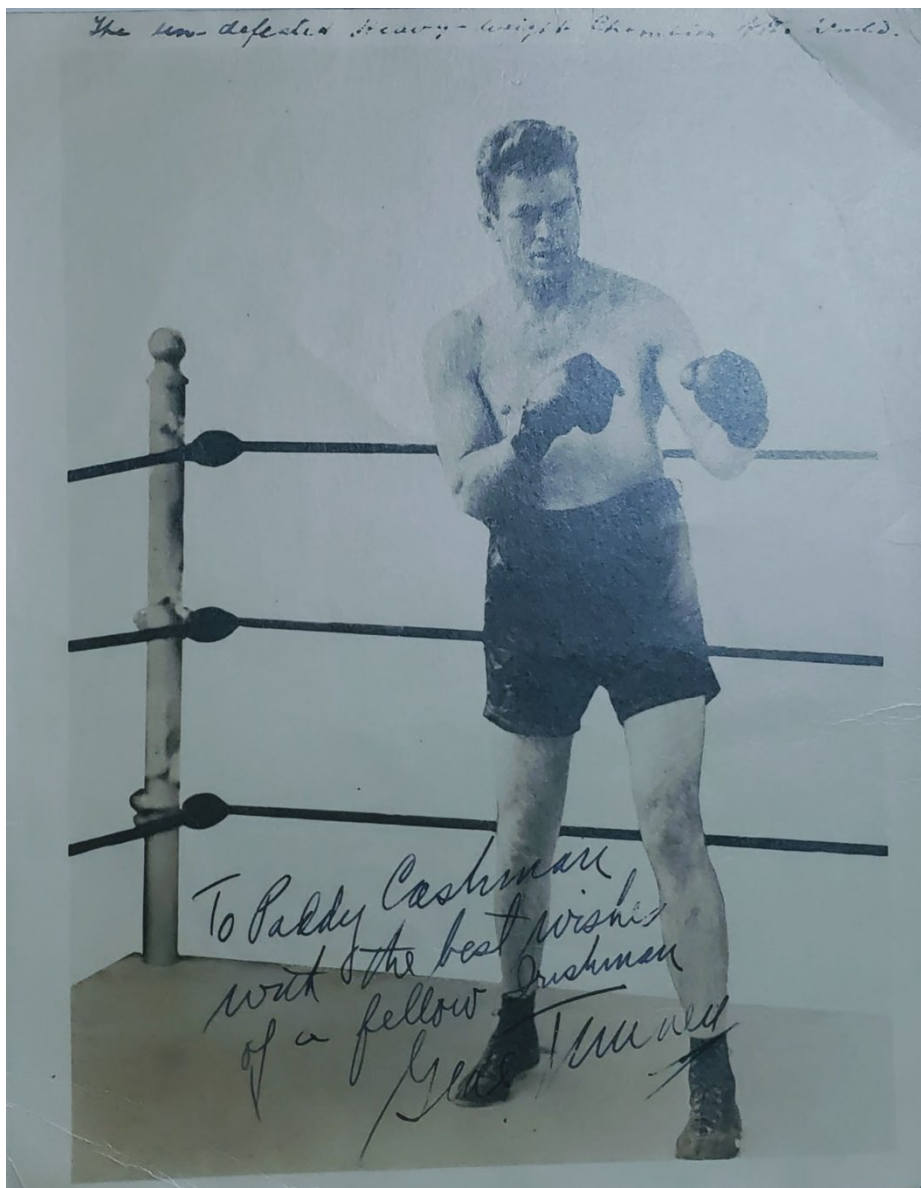 The un-defeated Heavy-weight Champion of the World.
To Paddy Cashman
with the best wishes
of a fellow Irishman
Gene Tunney